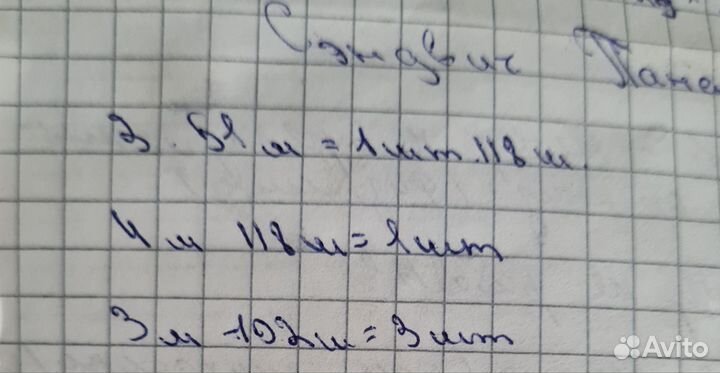 Сэндвич Пане
3.52 м = 1 шт. 118 ш.
4 м 118 ш = 1 шт
3 м 102 ш = 3 шт
Avito